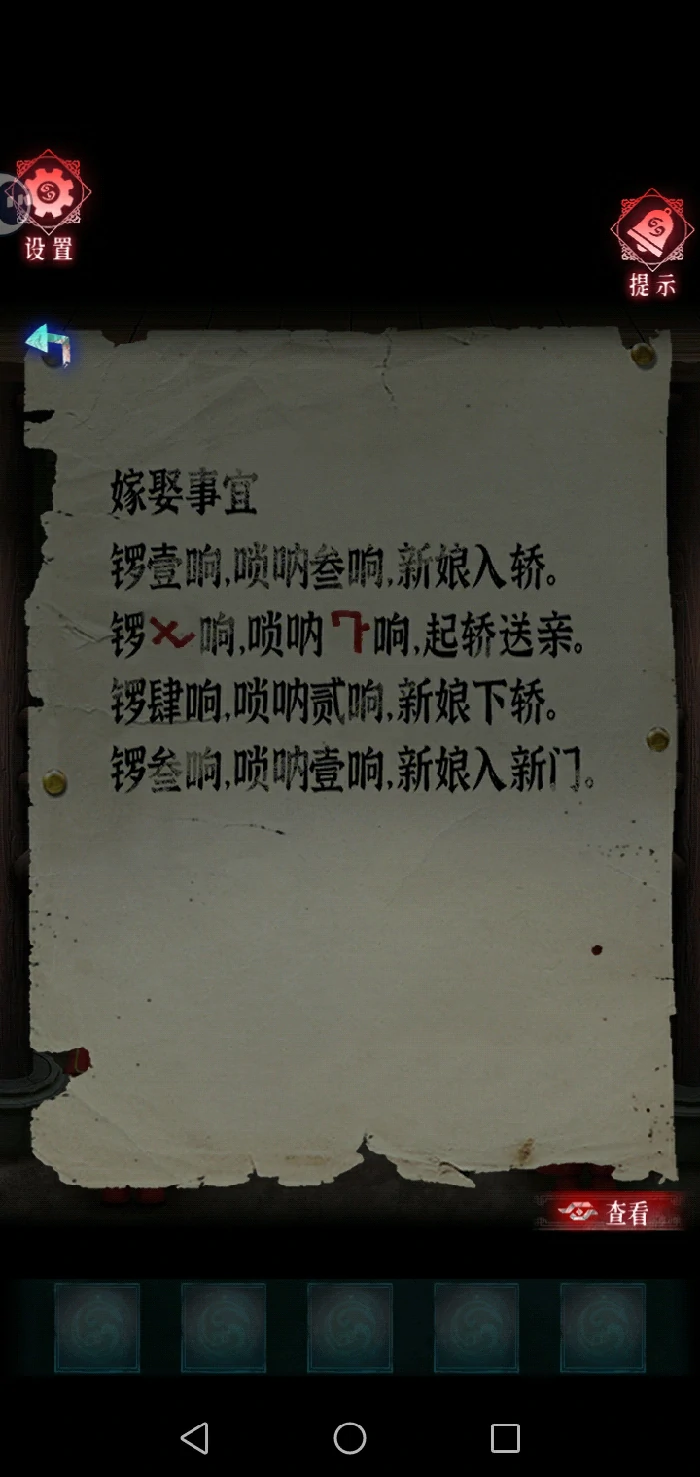 设置
提示
嫁娶事宜
锣壹响,唢呐叁响,新娘入轿。
锣 响,唢呐 响,起轿送亲。
锣肆响,唢呐贰响,新娘下轿。
锣叁响,唢呐壹响,新娘入新门。
查看